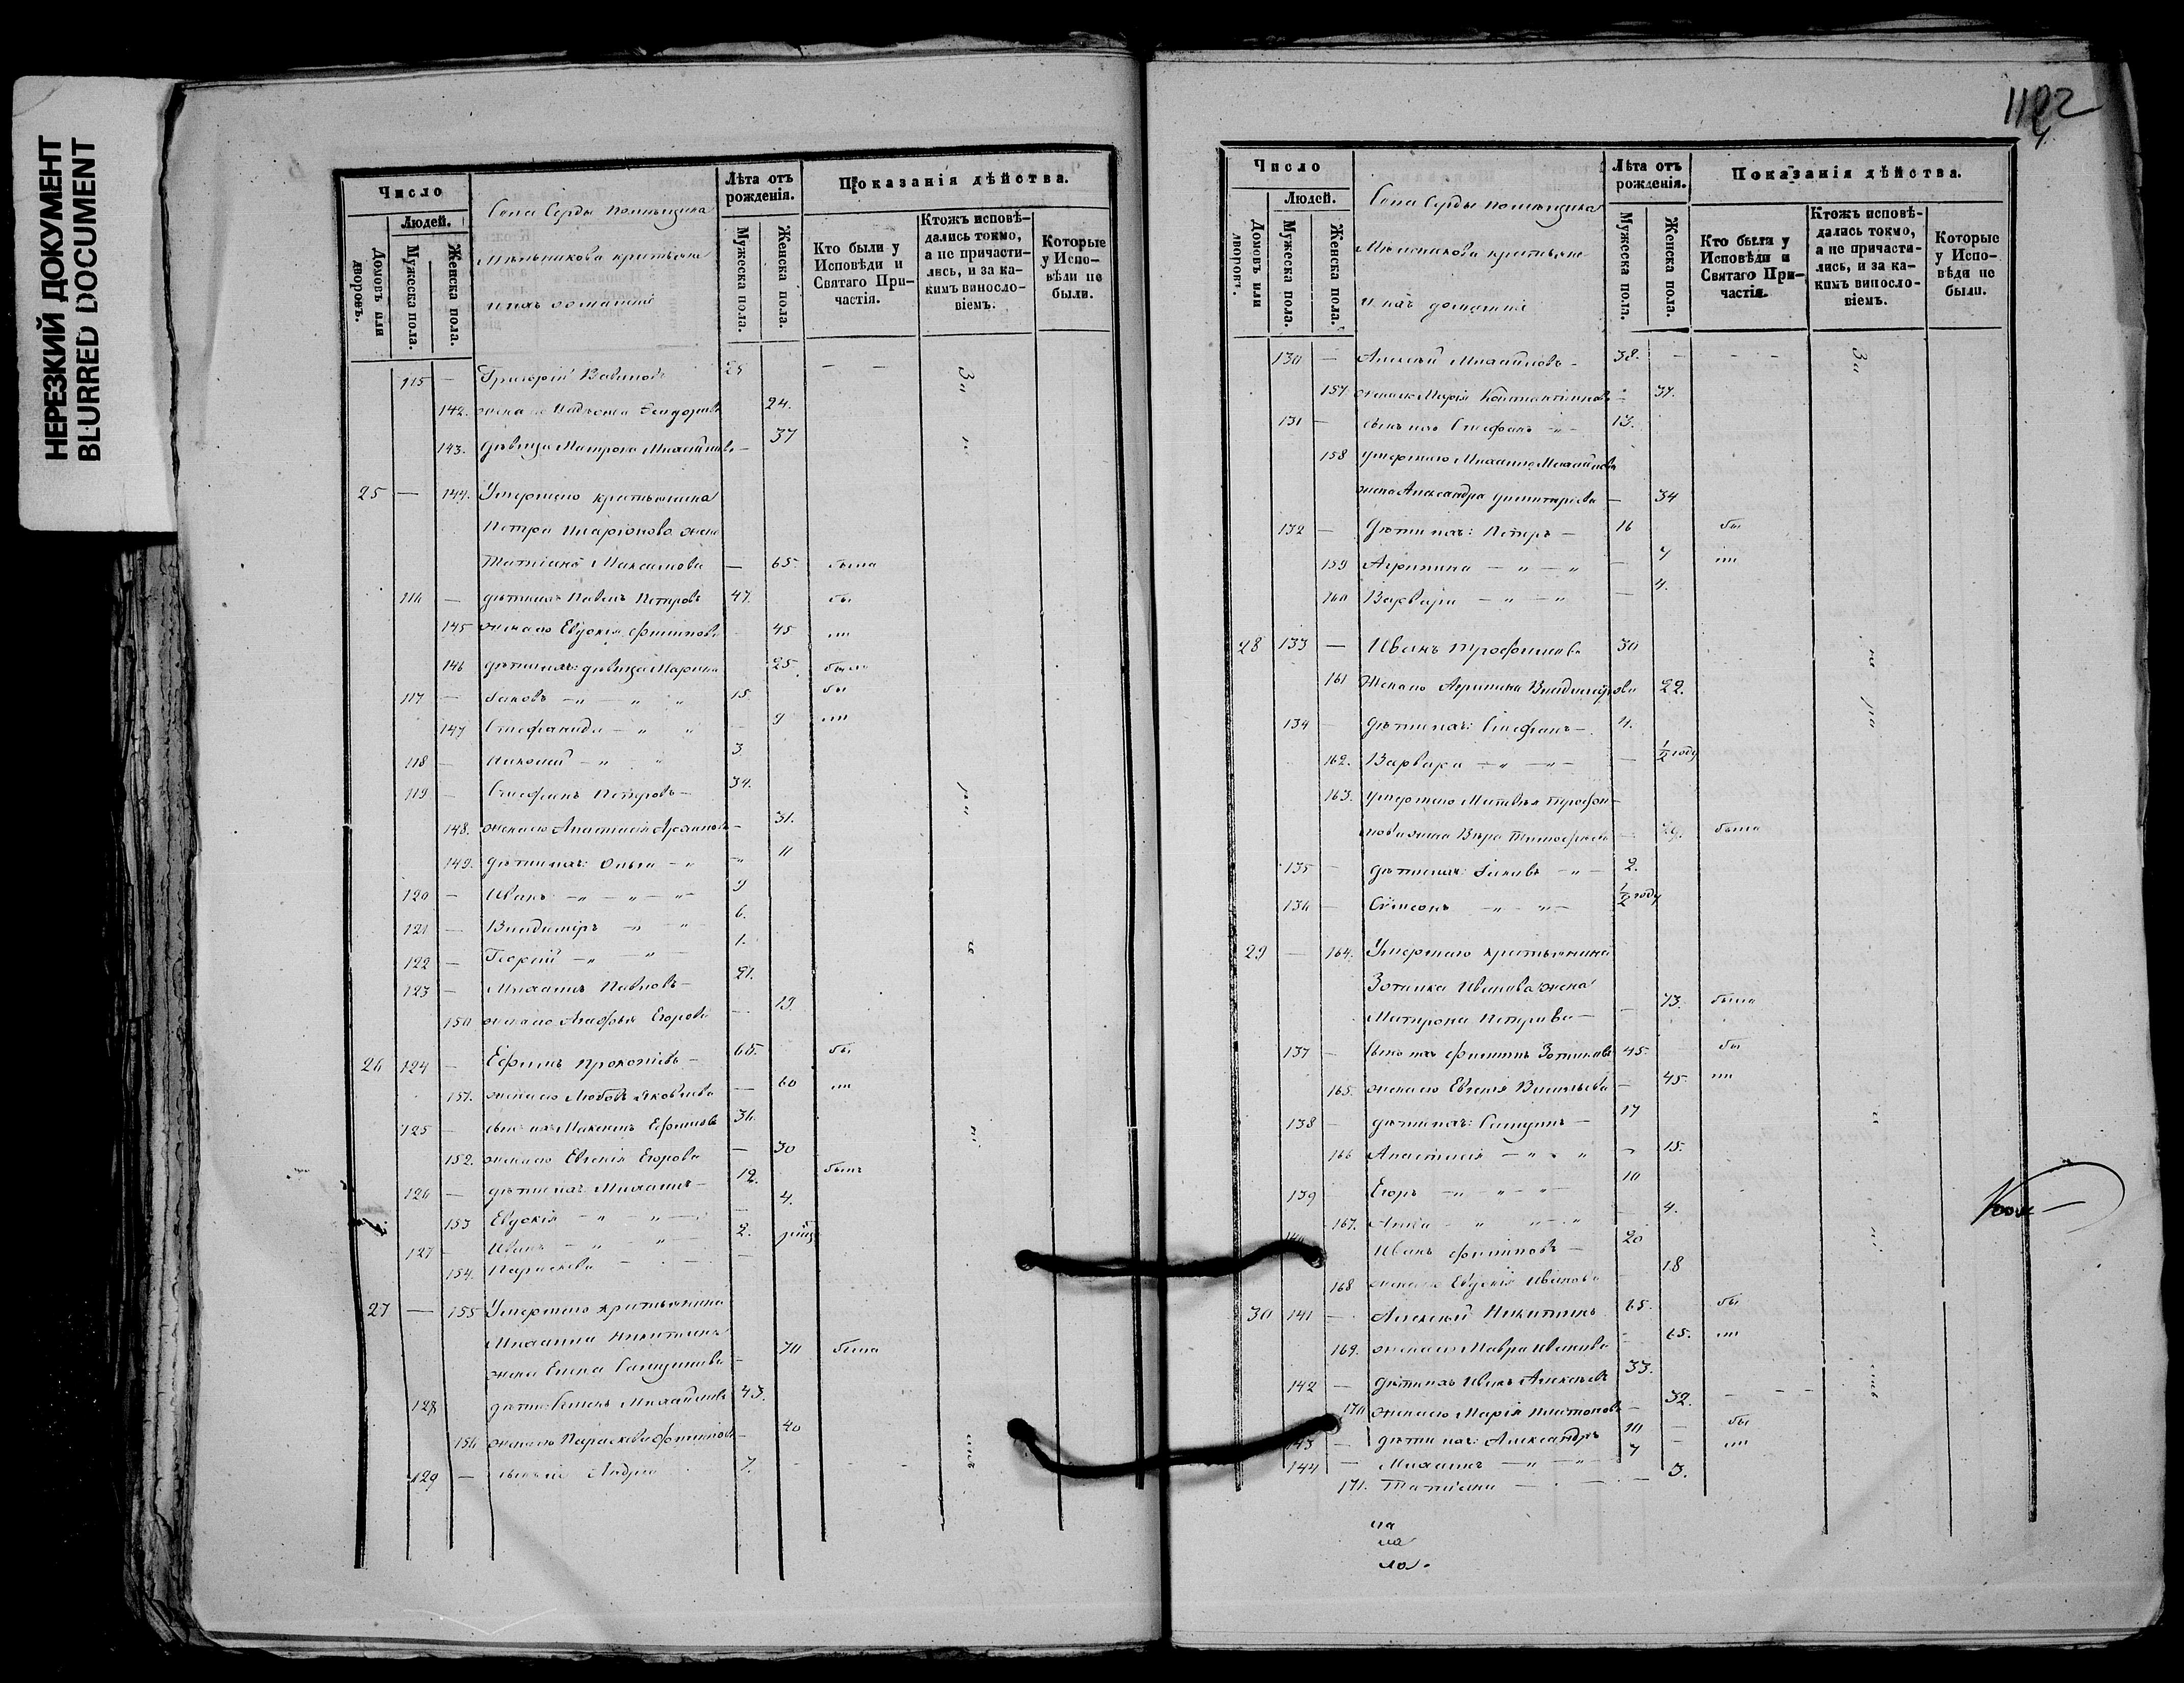 НЕРЕЗКИЙ ДОКУМЕНТ
BLURRED DOCUMENT
Число
Людей.
Домовъ или дворовъ.
Мужеска пола.
Женска пола.
Села Серды помѣщика
Мѣльникова крестьяне
и ихъ домашніе
Лѣта отъ рожденія.
Мужеска пола.
Женска пола.
Показанія дѣйства.
Кто были у Исповѣди и Святаго Причастія.
Ктожъ исповѣдались токмо, а не причастились, и за какимъ винословіемъ.
Которые у Исповѣди не были.
115 — Григорій 25 — — За
142. жена его 24.
143. дѣвица Матрона — 37
25 — 144. Умершаго крестьянина
Петра Иларіонова жена
Татіана Максимова — 65 была
116 — Павелъ Петровъ 47. бы
145 жена его Евдокія Филипова 45 ли
146 дѣти ихъ: дѣвица Марина 25 была
117 — Іаковъ — „ — „ „ 15. бы
147 Стефанида — „ „ 9 ли
118 — Николай — „ „ 3
119 — Стефанъ Петровъ — 34.
148. жена его Анастасія — 31.
149. дѣти ихъ: Ольга — „ „ 11
120 — Иванъ — „ — „ — „ 9
121 — Владиміръ — „ „ 6.
122 — Георгій — „ — „ — 1.
123 — Михаилъ Павловъ — 21.
150 жена его Агафья Егорова — 19.
26 124 — Ефимъ Прокопіевъ — 65. бы
151. жена его Любовь Яковлева — 60 ли
125 — сынъ ихъ Максимъ Ефимовъ 36.
152. жена его Евгенія Егорова — 30
126 — дѣти ихъ: Михаилъ — 12. былъ
153 Евдокія — „ — „ — 4.
127 — Иванъ — „ — „ — 2.
154. Параскева — —
27 — 155 Умершаго крестьянина
Михаила Никитина
жена Елена — 70 была
128 Михайловъ 43.
156 жена его Параскева Филипова — 40
129 — сынъ ихъ Андрей 7. — — —
1122
Число
Людей.
Домовъ или дворовъ.
Мужеска пола.
Женска пола.
Села Серды помѣщика
Мѣльникова крестьяне
и ихъ домашніе
Лѣта отъ рожденія.
Мужеска пола.
Женска пола.
Показанія дѣйства.
Кто были у Исповѣди и Святаго Причастія.
Ктожъ исповѣдались токмо, а не причастились, и за какимъ винословіемъ.
Которые у Исповѣди не были.
130 — Алексѣй Михайловъ — 38. — — — За
157 жена его Марія Константинова 37.
131 — сынъ ихъ Стефанъ — „ — 13.
158 умершаго Михаила Михайлова
жена Александра Димитріева — 34
132 — Дѣти ихъ: Петръ — 16 бы
159 Агрипина — „ — „ — 7 ли
160 Варвара — „ — „ — 4.
28 133 — Иванъ Трофимовъ 30
161 Жена его Агрипина Владимірова 22.
134 — Дѣти ихъ: Стефанъ — 4.
162. Варвара — „ — „ — — ½ году
163. умершаго Матвѣя Трофи-
мова жена Вѣра Тимофѣева — была
135 — дѣти ихъ: Іаковъ — „ — 2.
136 — Симеонъ — „ — „ — ½ году
29 — 164. Умершаго крестьянина
Зотика Иванова жена
Матрона Петрова — — 73. была
137 — сынъ ихъ Филиппъ Зотиковъ 45. бы
165. жена его Евгенія Васильева — 45. ли
138 — дѣти ихъ: — 17
166 Анастасія — „ „ „ — 15.
139 — Егоръ — „ — „ — „ 10
167. Анна — „ „ — „ 4.
140 Иванъ Филиповъ — 20
168 жена его Евдокія Иванова 18
30 141 — Алексѣй Никитинъ 65. бы
169. жена его Мавра Иванова — 65. ли
142 — Дѣти ихъ Иванъ Алексѣевъ 33.
170 жена его Марія Платонова — 32. — — —
143 — дѣти ихъ: Александръ 10 — бы
144 — Михаилъ — „ — „ — 7 — ли
171. Татіана — — — 3.